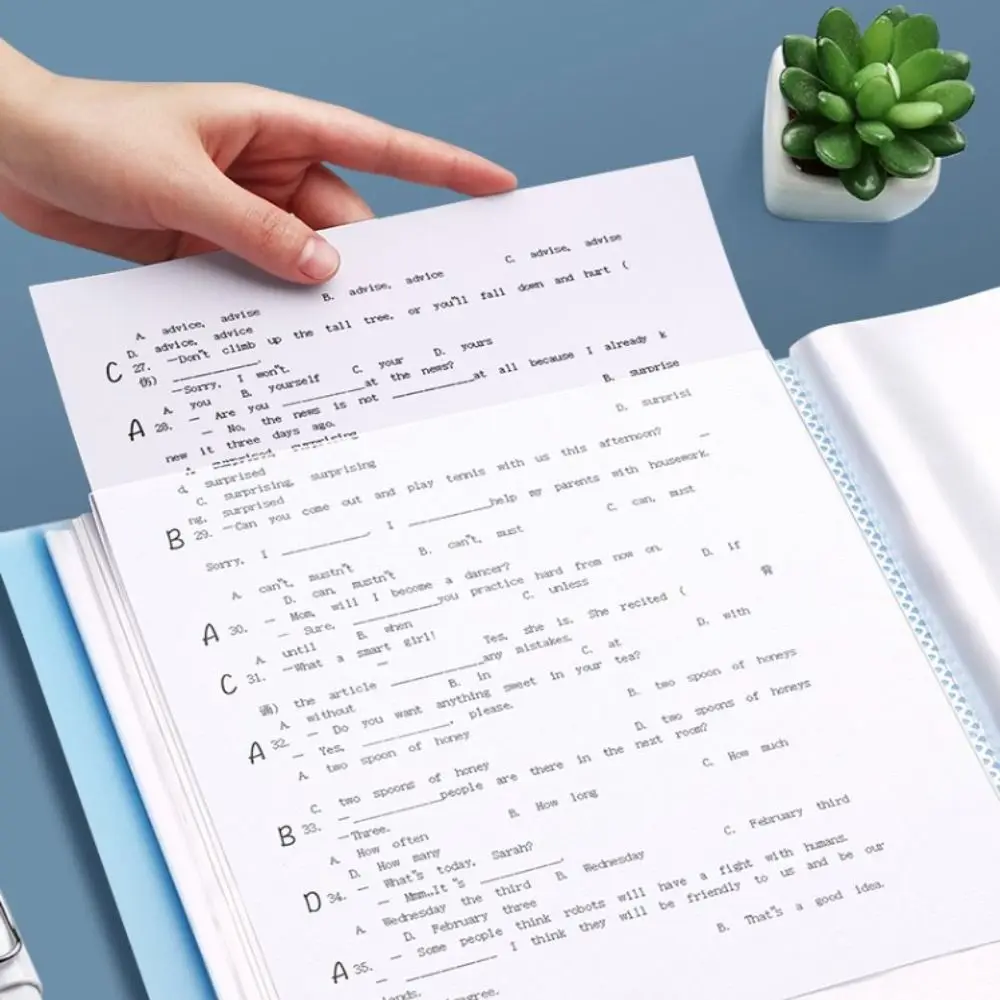 A. advice, advise B. advise, advice C. advise, advise
D. advice, advice
C 27. —Don't climb up the tall tree, or you'll fall down and hurt (
伤) ____________.
—Sorry, I won't.
A. you B. yourself C. your D. yours
A 28. — Are you ____________at the news?
— No, the news is not ____________at all because I already k
new it three days ago.
A. surprised, surprising B. surprise
d, surprised
C. surprising, surprising D. surprisi
ng, surprised
B 29. —Can you come out and play tennis with us this afternoon? —
Sorry, I ____________, I ____________help my parents with housework.
A. can't, mustn't B. can't, must C. can, must
D. can, mustn't
A 30. — Mom, will I become a dancer?
— Sure, ____________you practice hard from now on.
A. until B. when C. unless D. if
C 31. —What a smart girl! — Yes, she is. She recited ( 背
诵) the article ____________any mistakes.
A. without B. in C. at D. with
A 32. — Do you want anything sweet in your tea?
— Yes, ____________, please.
A. two spoon of honey B. two spoon of honeys
C. two spoons of honey D. two spoons of honeys
B 33. —____________people are there in the next room?
—Three.
A. How often B. How long C. How much
D. How many
D 34. — What's today, Sarah?
— Mmm..It 's ____________.
A. Wednesday the third B. Wednesday C. February third
D. February three
A 35. — Some people think robots will have a fight with humans.
— ____________ I think they will be friendly to us and be our
B. That's a good idea.